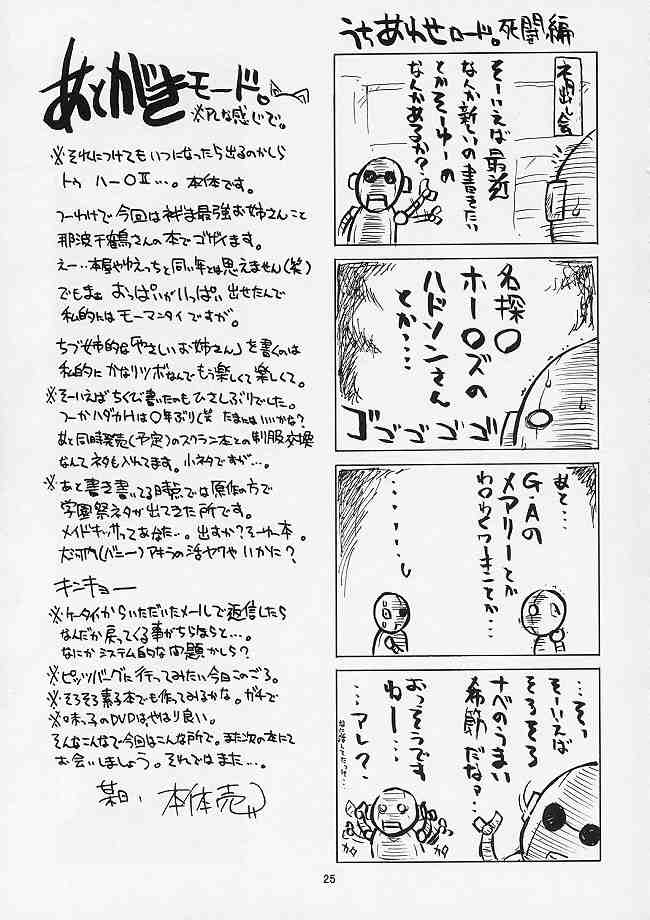 うちあわせロード。死闘編
ネタ出し会
そーいえば最近
なんか新しいの書きたい
とかそーゆーの
なんかあるか？
名探〇
ホー〇ズの
ハドソンさん
とか…
ゴゴゴゴゴゴ
あと…
G・Aの
メアリーとか
…そい
そーいえば
そろそろ
ナベのうまい
季節だなァ…
おっそうです
ねー…
…アレ？
カタ
カタ
あとがきモード。
※アレな感じで。
※それにつけてもいつになったら出るのかしら
トゥ ハー〇Ⅱ…。本体です。
つーわけで今回はネギま最強お姉さんこと
那波千鶴さんの本でゴザイます。
えー…本屋やゆえっちと同い年とは思えません(笑)
でもまぁ おっぱいがいっぱい出せたんで
私的にはモーマンタイですが。
ちづ姉的な「やさしいお姉さん」を書くのは
私的にかなりツボなんでもう楽しくて楽しくて。
※そーいえばちくび書いたのもひさしぶりでした。
つーかハダカHは〇年ぶり(笑 たまにはいいかな？
あと同時発売(予定)のスクラン本との制服交換
なんてネタも入れてます。小ネタですが…。
※あと書き書いてる時点では原作の方で
学園祭ネタが出てきた所です。
メイドキッサってあなた…。出すか？そーゆー本。
大河内(バニー)アキラの活ヤクやいかに？
キンキョー
※ケータイからいただいたメールで返信したら
なんだか戻ってくる事がちらほらと…。
なにかシステム的な問題かしら？
※ピッツバーグに行ってみたい今日このごろ。
※そろそろ素子本でも作ってみるかな。ガチで
※味っ子のDVDはやはり良い。
そんなこんなで今回はこんな所で。また次の本にて
お会いしましょう。それではまた…。
某日、本体売
25